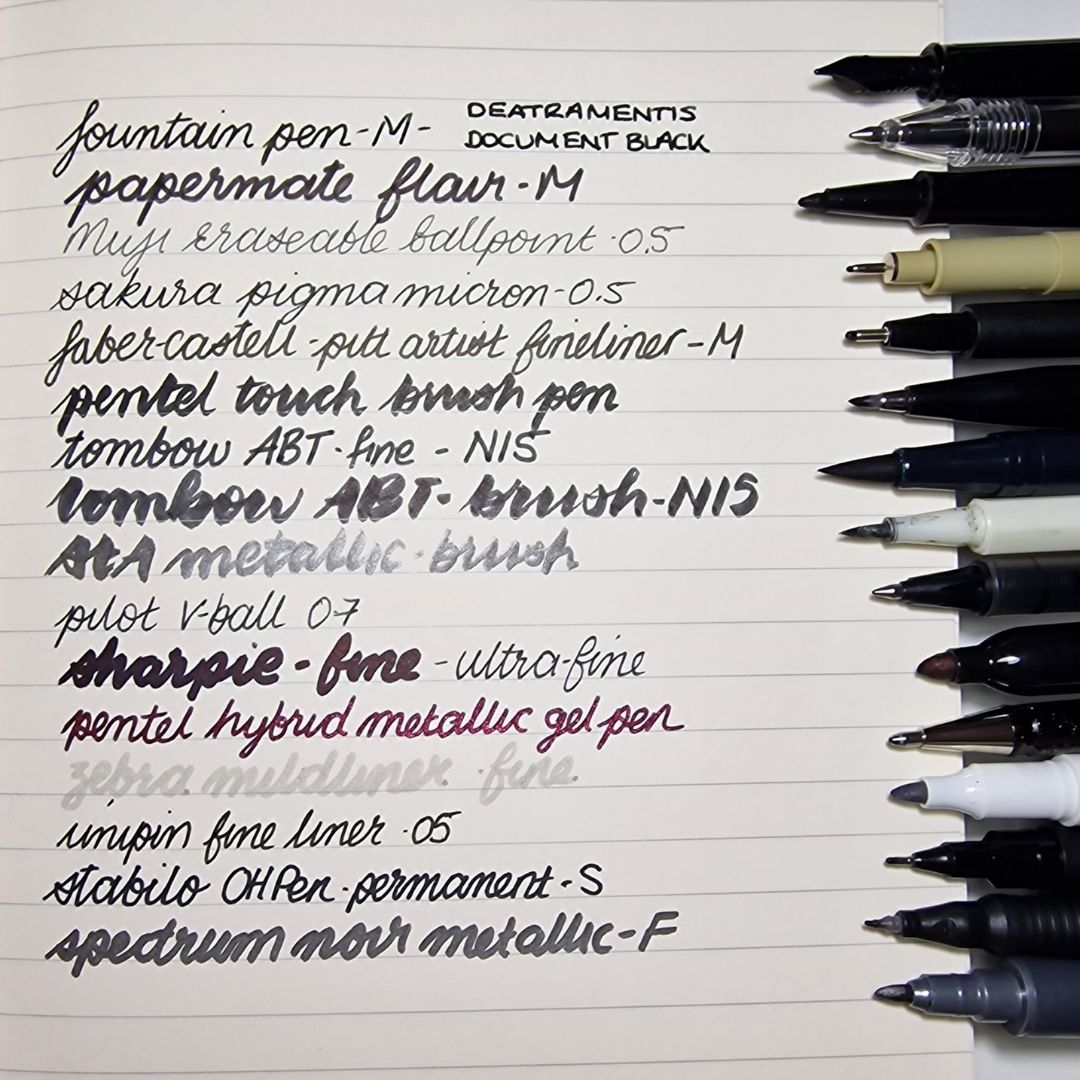 fountain pen-M- DEATRAMENTIS
DOCUMENT BLACK
papermate flair-M
Muji eraseable ballpoint-0.5
sakura pigma micron-0.5
faber-castell-pitt artist fineliner-M
pentel touch brush pen
tombow ABT-fine - N15
tombow ABT-brush-N15
AtA metallic-brush
pilot V-ball 07
sharpie-fine -ultra-fine
pentel hybrid metallic gel pen
zebra mildliner -fine
unipin fine liner -05
stabilo OHPen-permanent-S
spectrum noir metallic-F